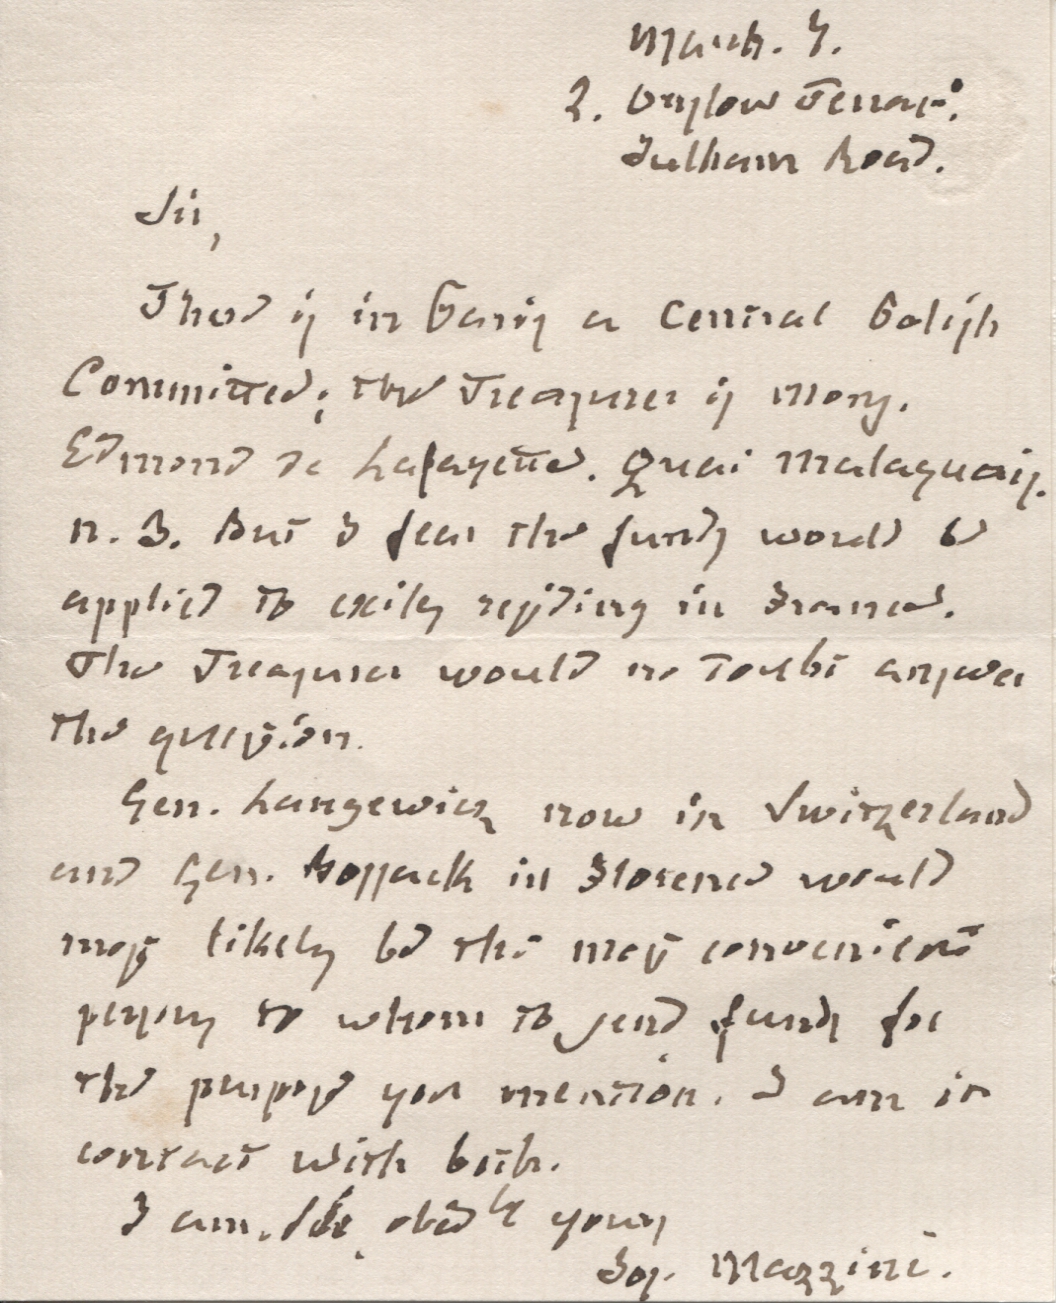 March. 4.
2. Onslow Terrace.
Fulham Road.
Sir,
There is in Paris a Central Polish
Committee; the Treasurer is Mons.
Edmond de Lafayette. Quai Malaquais.
n. 3. But I fear the funds would be
applied to exiles residing in France.
The Treasurer would no doubt answer
the question.
Gen. Langewicz now in Switzerland
and Gen. Bossack in Florence would
most likely be the most convenient
persons to whom to send funds for
the purpose you mention. I am in
contact with both.
I am, Sir, obedly yours
Jos. Mazzini.